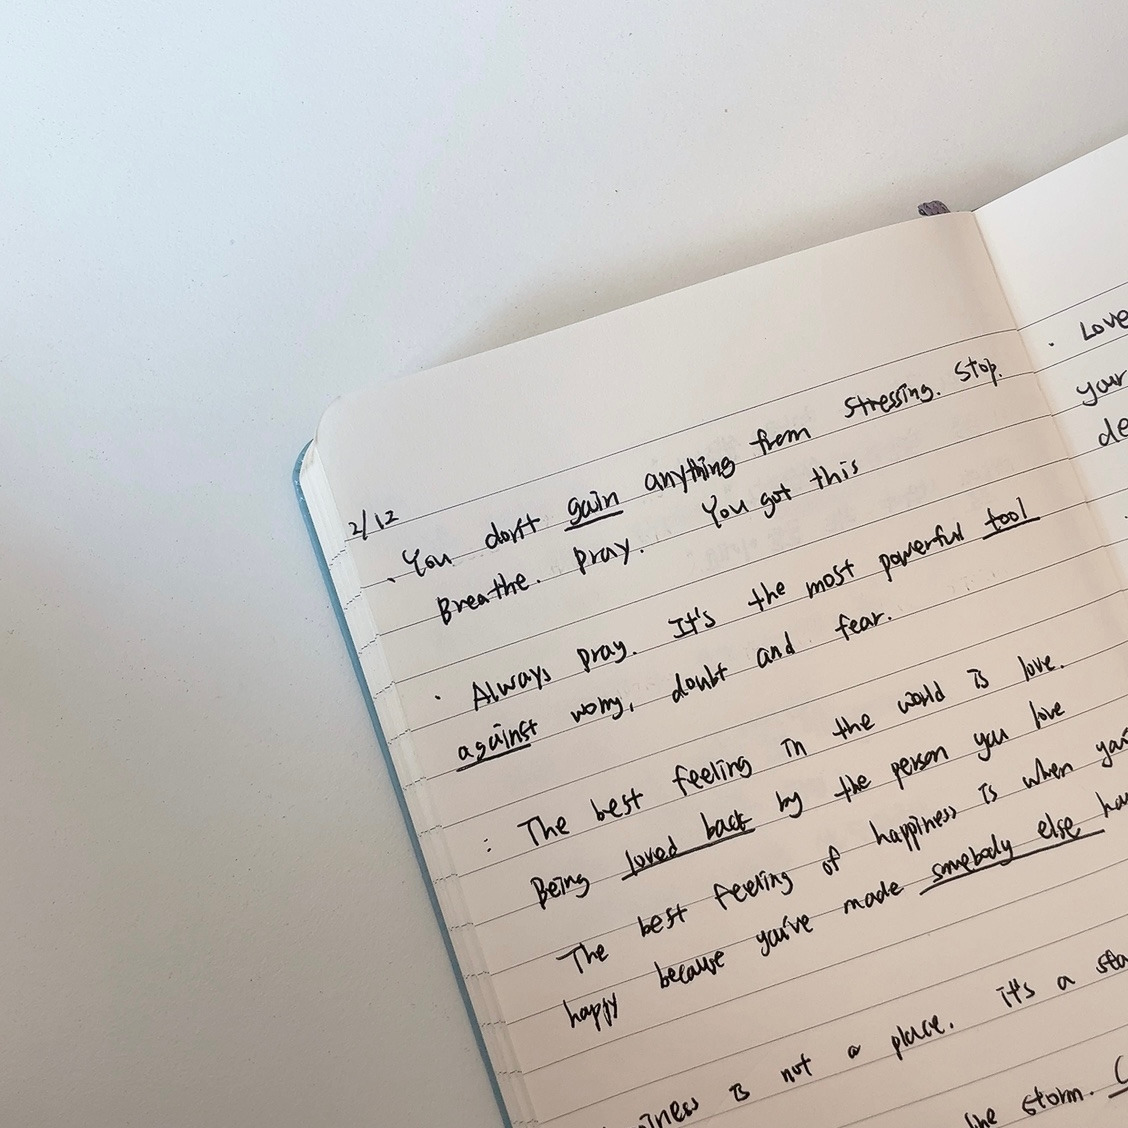 2/12
· You don't gain anything from stressing. Stop.
Breathe. pray. You got this
· Always pray. It's the most powerful tool
against worry, doubt and fear.
: The best feeling in the world is love.
Being loved back by the person you love
The best feeling of happiness is when you're
happy because you've made somebody else
happy
is not a place. it's a
storm.
· Love
your